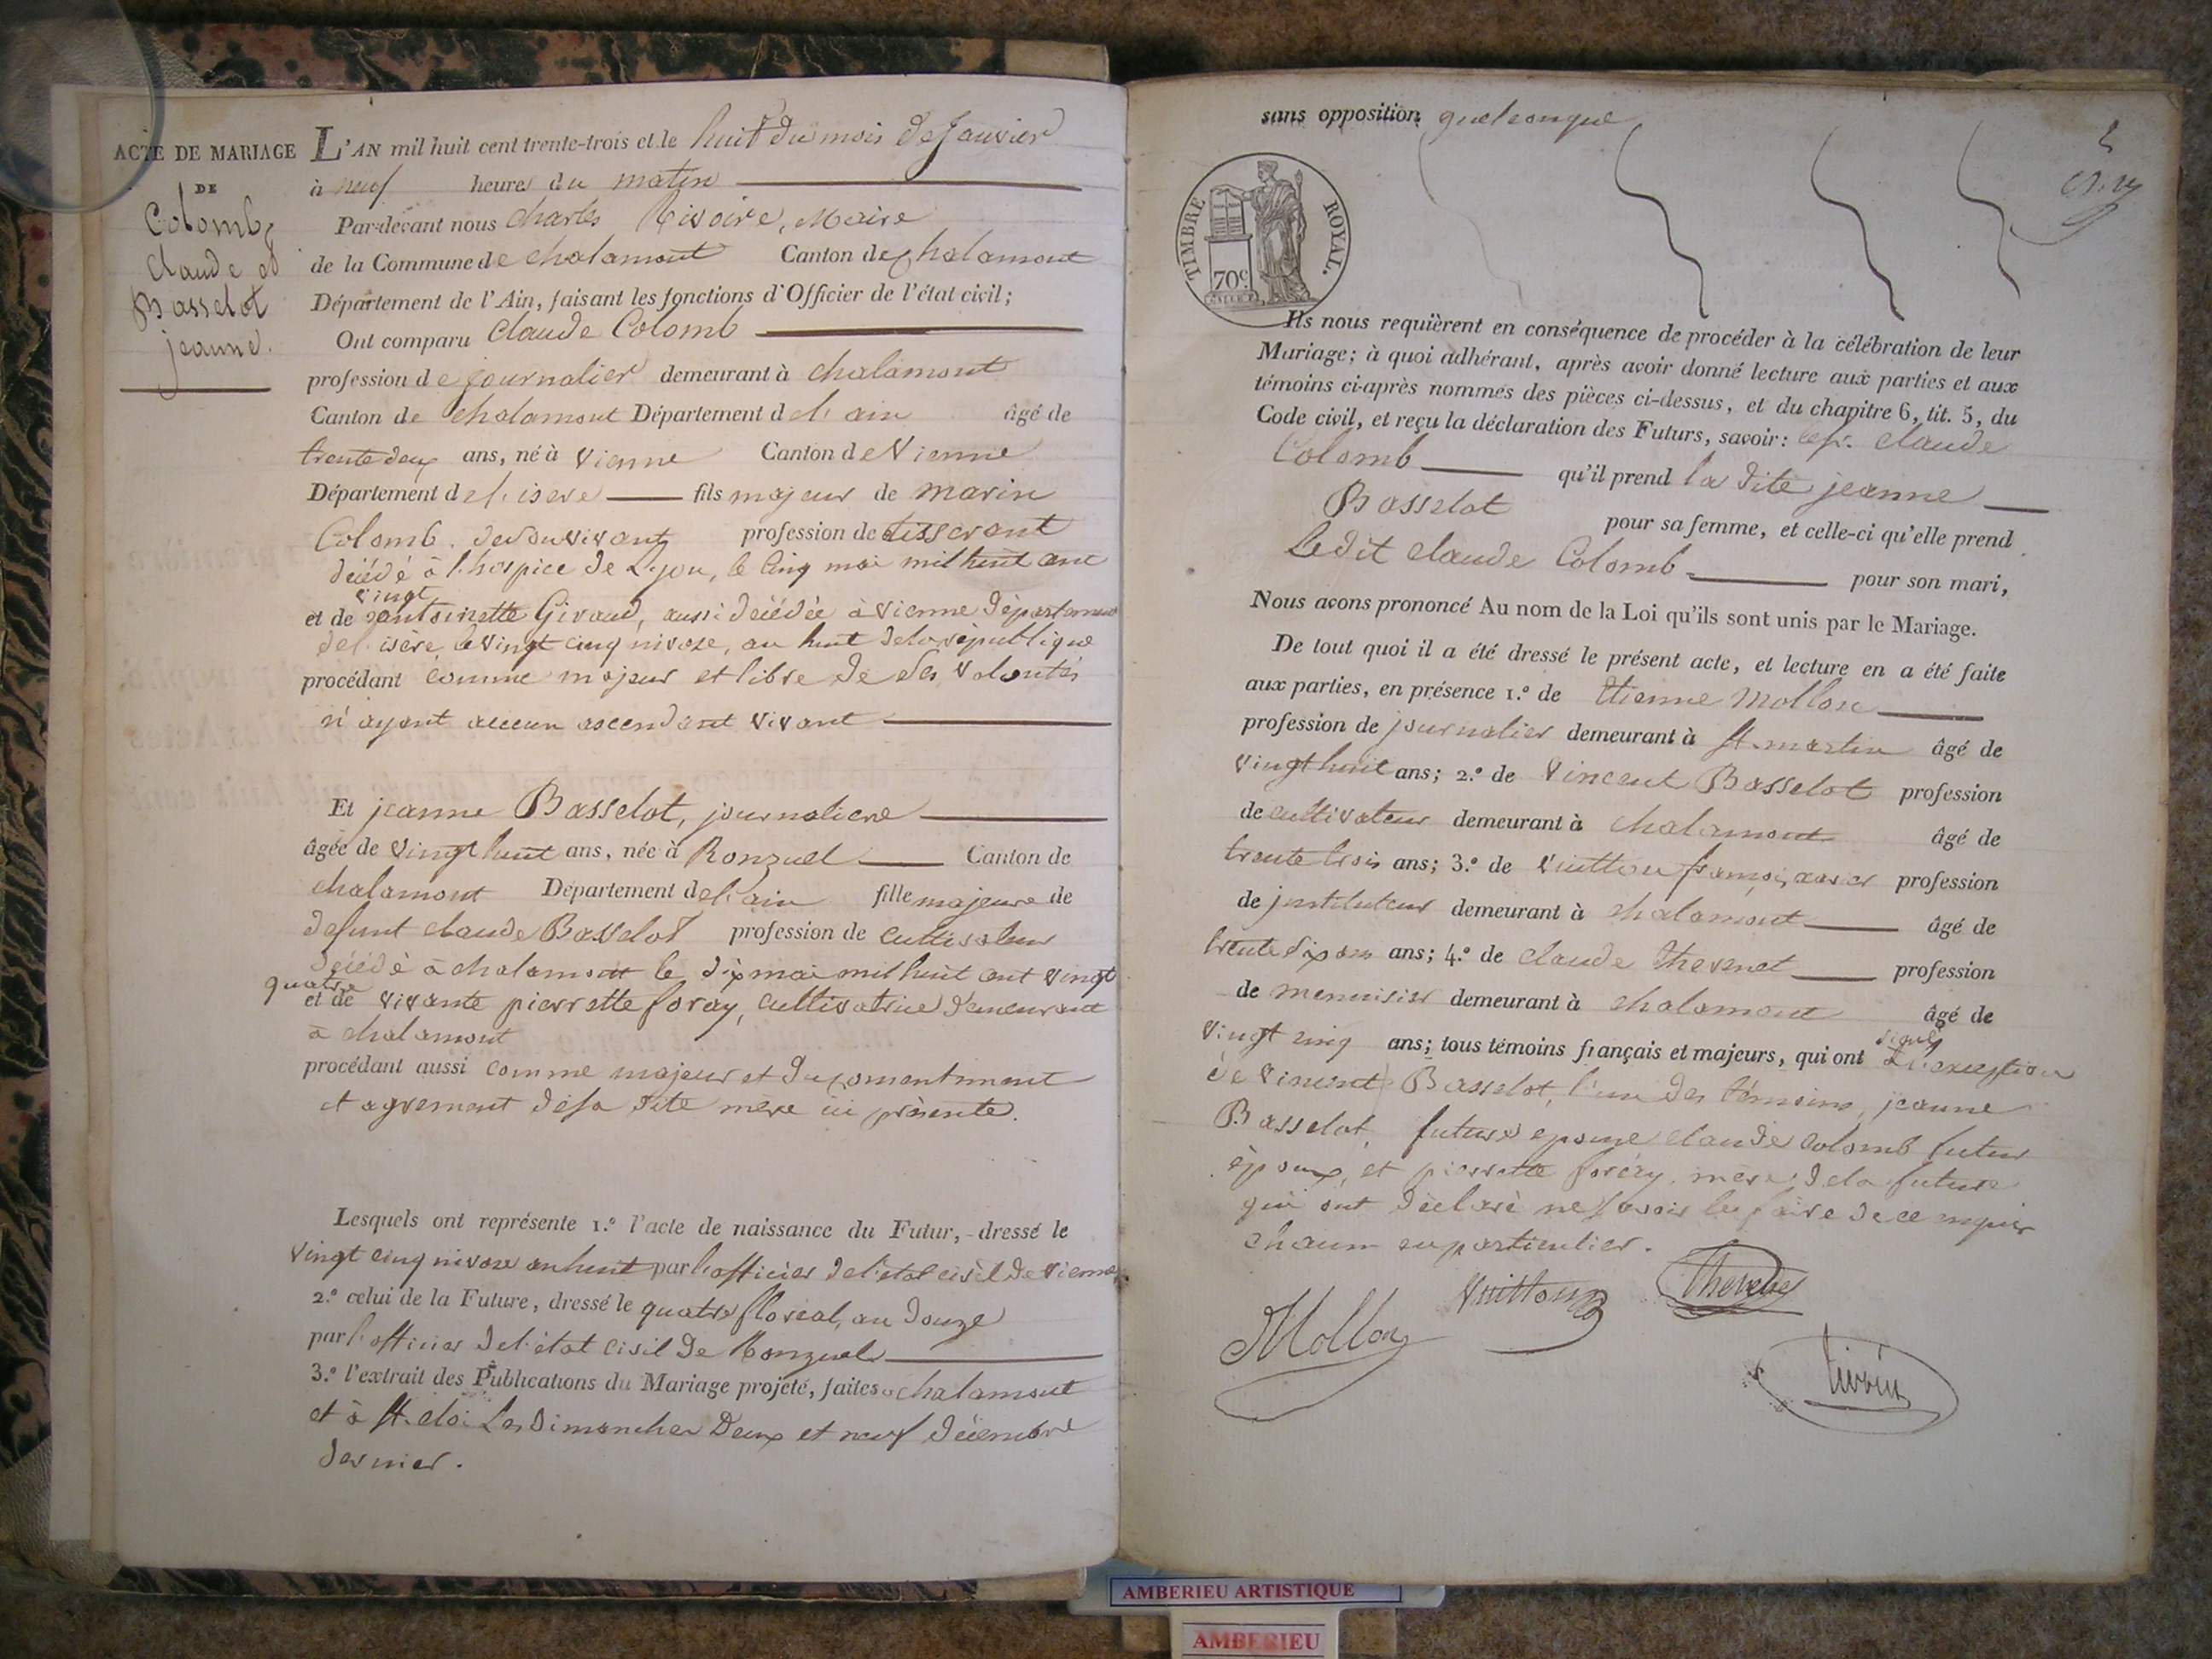 ACTE DE MARIAGE
DE
Colomb
Claude et
Basselot
jeanne.
L'AN mil huit cent trente-trois et le huit du mois de Janvier
à neuf heures du matin
Par-devant nous Charles Rivoire, Maire
de la Commune de Chalamont Canton de Chalamont
Département de l'Ain, faisant les fonctions d'Officier de l'état civil;
Ont comparu Claude Colomb
profession de journalier demeurant à Chalamont
Canton de Chalamont Département de l'ain âgé de
trente deux ans, né à Vienne Canton de Vienne
Département de l'isere fils majeur de marin
Colomb, de son vivant profession de tisserant
décédé à l'hospice de Lyon, le cinq mai mil huit cent
vingt
et de antoinette Givaud, aussi décédée à Vienne département
de l'isère, le vingt cinq nivoze, an huit de la république
procédant comme majeur et libre de ses volontés
n'ayant aucun ascendant vivant
Et jeanne Basselot, journaliere
âgée de vingt huit ans, née à Ronzuel Canton de
chalamont Département de l'ain fille majeure de
defunt claude Basselot profession de cultivateur
décédé à chalamont le dix mai mil huit cent vingt
quatre
et de vivante pierrette foray, cultivatrice demeurant
à chalamont
procédant aussi comme majeur et du consentement
et agrement de sa dite mère ici présente.
Lesquels ont représenté 1.º l'acte de naissance du Futur, dressé le
vingt cinq nivose an huit par l'officier de l'état civil de Vienne,
2.º celui de la Future, dressé le quatre floreal, an douze
par l'officier de l'état civil de Ronzuel
3.º l'extrait des Publications du Mariage projeté, faites à chalamont
et à St. eloi Les dimanches Deux et neuf décembre
dernier.
sans opposition quelconque
TIMBRE ROYAL.
70c
Ils nous requièrent en conséquence de procéder à la célébration de leur
Mariage; à quoi adhérant, après avoir donné lecture aux parties et aux
témoins ci-après nommés des pièces ci-dessus, et du chapitre 6, tit. 5, du
Code civil, et reçu la déclaration des Futurs, savoir: claude
Colomb qu'il prend la dite jeanne
Basselot pour sa femme, et celle-ci qu'elle prend
Ledit claude Colomb pour son mari,
Nous avons prononcé Au nom de la Loi qu'ils sont unis par le Mariage.
De tout quoi il a été dressé le présent acte, et lecture en a été faite
aux parties, en présence 1.º de Etienne Mollon
profession de journalier demeurant à St. martin âgé de
vingt huit ans; 2.º de Vincent Basselot profession
de cultivateur demeurant à chalamont âgé de
trente trois ans; 3.º de Vuitton françois xavier profession
de instituteur demeurant à chalamont âgé de
trente six ans ans; 4.º de claude Thevenet profession
de menuisier demeurant à chalamont âgé de
vingt cinq ans; tous témoins français et majeurs, qui ont signé à l'exception
de Vincent Basselot, l'un des témoins, jeanne
Basselot, future epouse claude Colomb futur
époux, et pierrette foray, mère de la future
qui ont déclaré ne savoir le faire de ce enquis
chacun en particulier.
Mollon
Vuitton
Thevenet
AMBERIEU ARTISTIQUE
AMBERIEU